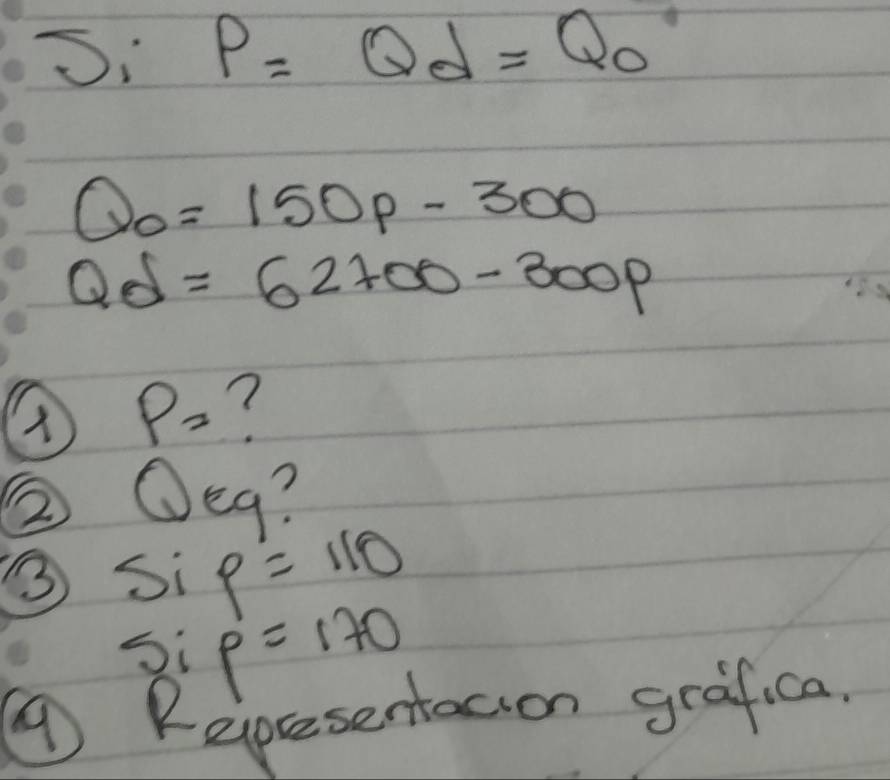 Si P = Qd = Qo
Qo = 150p - 300
Qd = 62700 - 300p
① P = ?
② Qeq?
③ Si p = 110
Si p = 170
④ Representacion gráfica.